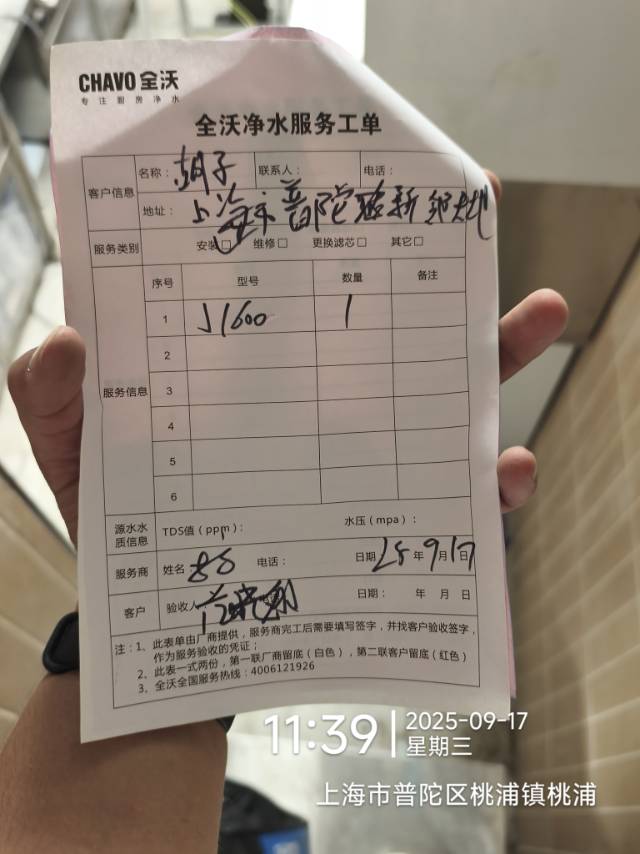 CHAVO 全沃
专注厨房净水
全沃净水服务工单
客户信息
名称：胡子 联系人： 电话：
地址：上海市普陀
服务类别 安装□ 维修□ 更换滤芯□ 其它□
服务信息
序号 型号 数量 备注
1 J1600 1
2
3
4
5
6
源水水质信息 TDS值（ppm）： 水压（mpa）：
服务商 姓名： 电话： 日期 25年9月17日
客户 验收人 日期： 年 月 日
注：1、此表单由厂商提供，服务商完工后需要填写签字，并找客户验收签字，
作为服务验收的凭证；
2、此表一式两份，第一联厂商留底（白色），第二联客户留底（红色）
3、全沃全国服务热线：4006121926
11:39 2025-09-17
星期三
上海市普陀区桃浦镇桃浦